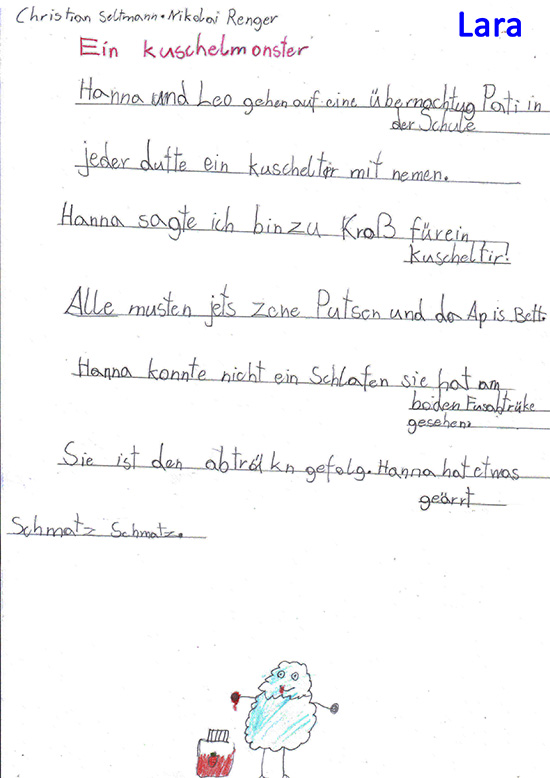 Christian Seltmann • Nikolai Renger
Lara
Ein kuschelmonster
Hanna und Leo gehen auf eine übernachtug Pati in
der Schule
jeder dufte ein kuscheltir mit nemen.
Hanna sagte ich bin zu Kroß für ein
kuscheltir!
Alle musten jets zene Putsen und do Ap is Bett.
Hanna konnte nicht ein Schlafen sie hat am
boden Fusabtrüke
gesehen.
Sie ist den gefolg. Hanna hat etwas
geärrt
Schmatz Schmatz.